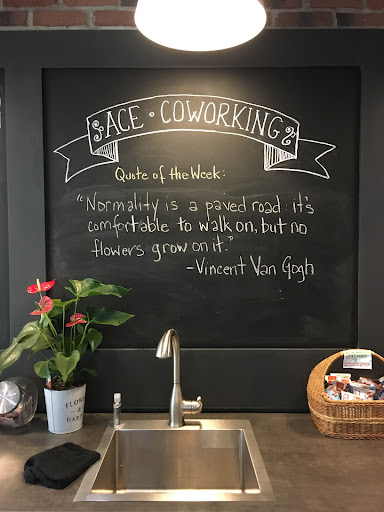 ACE • COWORKING
Quote of the Week:
"Normality is a paved road: it's
comfortable to walk on, but no
flowers grow on it."
-Vincent Van Gogh
FLOWERS
&